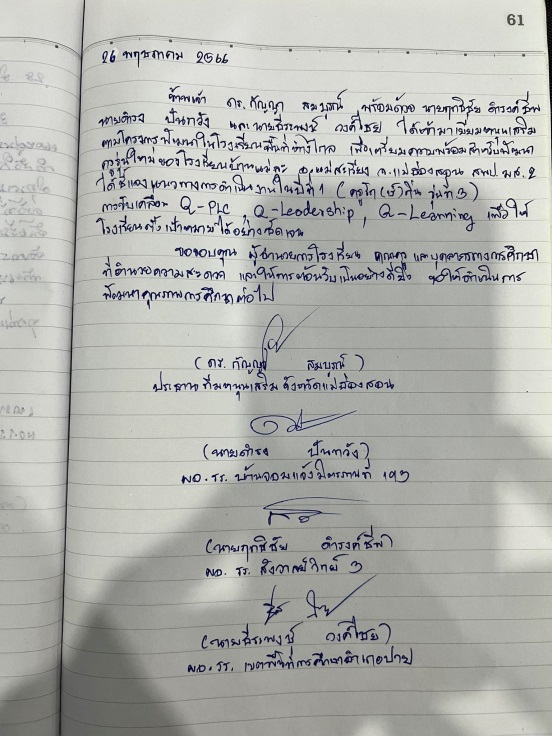 61
26 พฤษภาคม 2566
ข้าพเจ้า ดร. กัญญา สมบูรณ์ พร้อมด้วย นายฤทธิชัย ดำรงค์ชีพ
นายดำรง ปันทวัง และ นายธีระพงษ์ วงศ์ไชย ได้เข้ามาเยี่ยมหนุนเสริม
ตามโครงการพัฒนาโรงเรียนพื้นที่ห่างไกล เพื่อเตรียมความพร้อมสำหรับพัฒนา
ครูรุ่นใหม่ของโรงเรียนบ้าน อ.แม่สะเรียง จ.แม่ฮ่องสอน สพป. มส. 2
ได้ชี้แจงแนวทางการดำเนินงานในปีที่ 1 (ครูรัก(ษ์)ถิ่น รุ่นที่ 3)
การขับเคลื่อน Q-PLC, Q-Leadership, Q-Learning เพื่อให้
โรงเรียน เป้าหมายได้อย่างชัดเจน
ขอขอบคุณ ผู้อำนวยการโรงเรียน คณะครู และบุคลากรทางการศึกษา
ที่อำนวยความสะดวก และให้การต้อนรับเป็นอย่างดียิ่ง ขอให้ดำเนินการ
พัฒนาคุณภาพการศึกษาต่อไป
(ดร. กัญญา สมบูรณ์)
ประธานทีมหนุนเสริม จังหวัดแม่ฮ่องสอน
(นายดำรง ปันทวัง)
ผอ. รร. บ้านจอมแจ้งมิตรภาพที่ 193
(นายฤทธิชัย ดำรงค์ชีพ)
ผอ. รร. สังวาลย์วิทย์ 3
(นายธีระพงษ์ วงศ์ไชย)
ผอ. รร. เขตพื้นที่การศึกษาอำเภอปาย